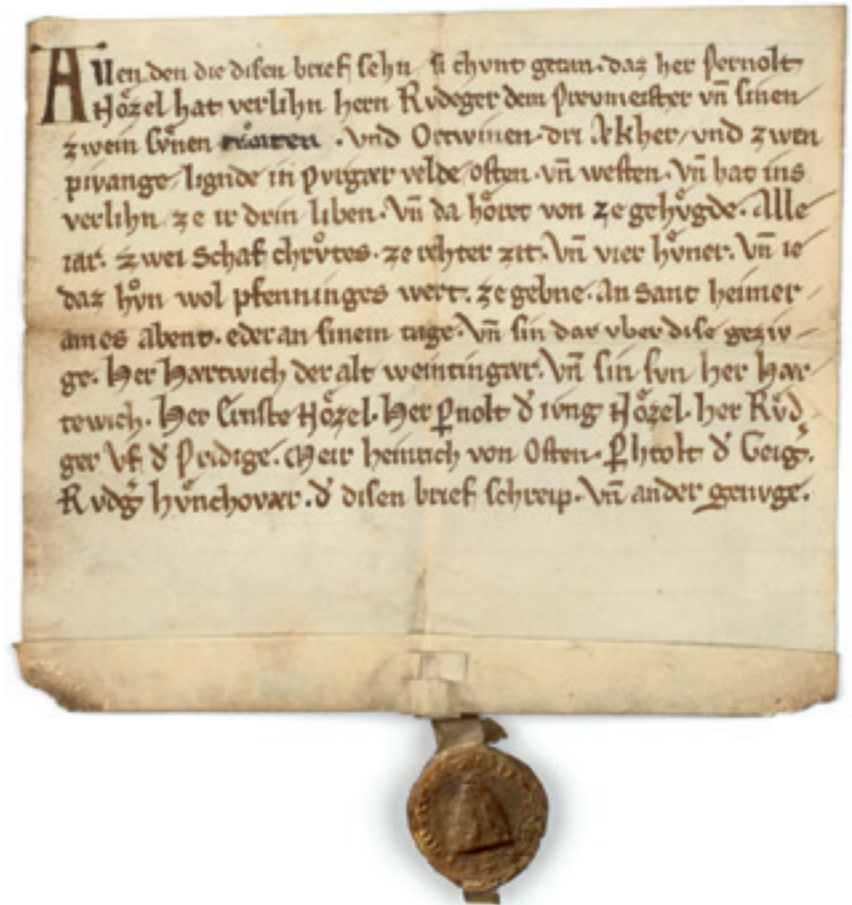 Allen den die disen brief sehn si chunt getan. daz her Pernolt
Hoͤzel hat verlihn hern Ruͤdeger dem Preumeister vn̄ sinen
zwein suͤnen . vnd Ortwinen. dri Ækher, vnd zwen
pivange, lignde in Pvrgær velde osten. vn̄ westen. Vn̄ hat ins
verlihn, ze ir drin liben. Vn̄ da hoͤret von ze gehuͤgde. Alle
iar. zwei Schaf chruͤtes. ze rehter zit. Vn̄ vier huͤner. Vn̄ ie
daz huͦn wol pfenninges wert. ze gebne. An sant heimer
ames abent. eder an sinem tage. Vn̄ sin dar vber dise geziv
ge. Her Hartwich der alt weintingær. Vn̄ sin sun her Har
tewich. Her Ernste Hoͤzel. Her P̲nolt d̛ iung Hoͤzel. her Ruͦd
ger Vf d̛ Predige. Meir heinrich von Osten. P̲htolt d̛ Geig̛.
Rvdg̛ huͤnchovær. d̛ disen brief schreip. Vn̄ ander genvge.